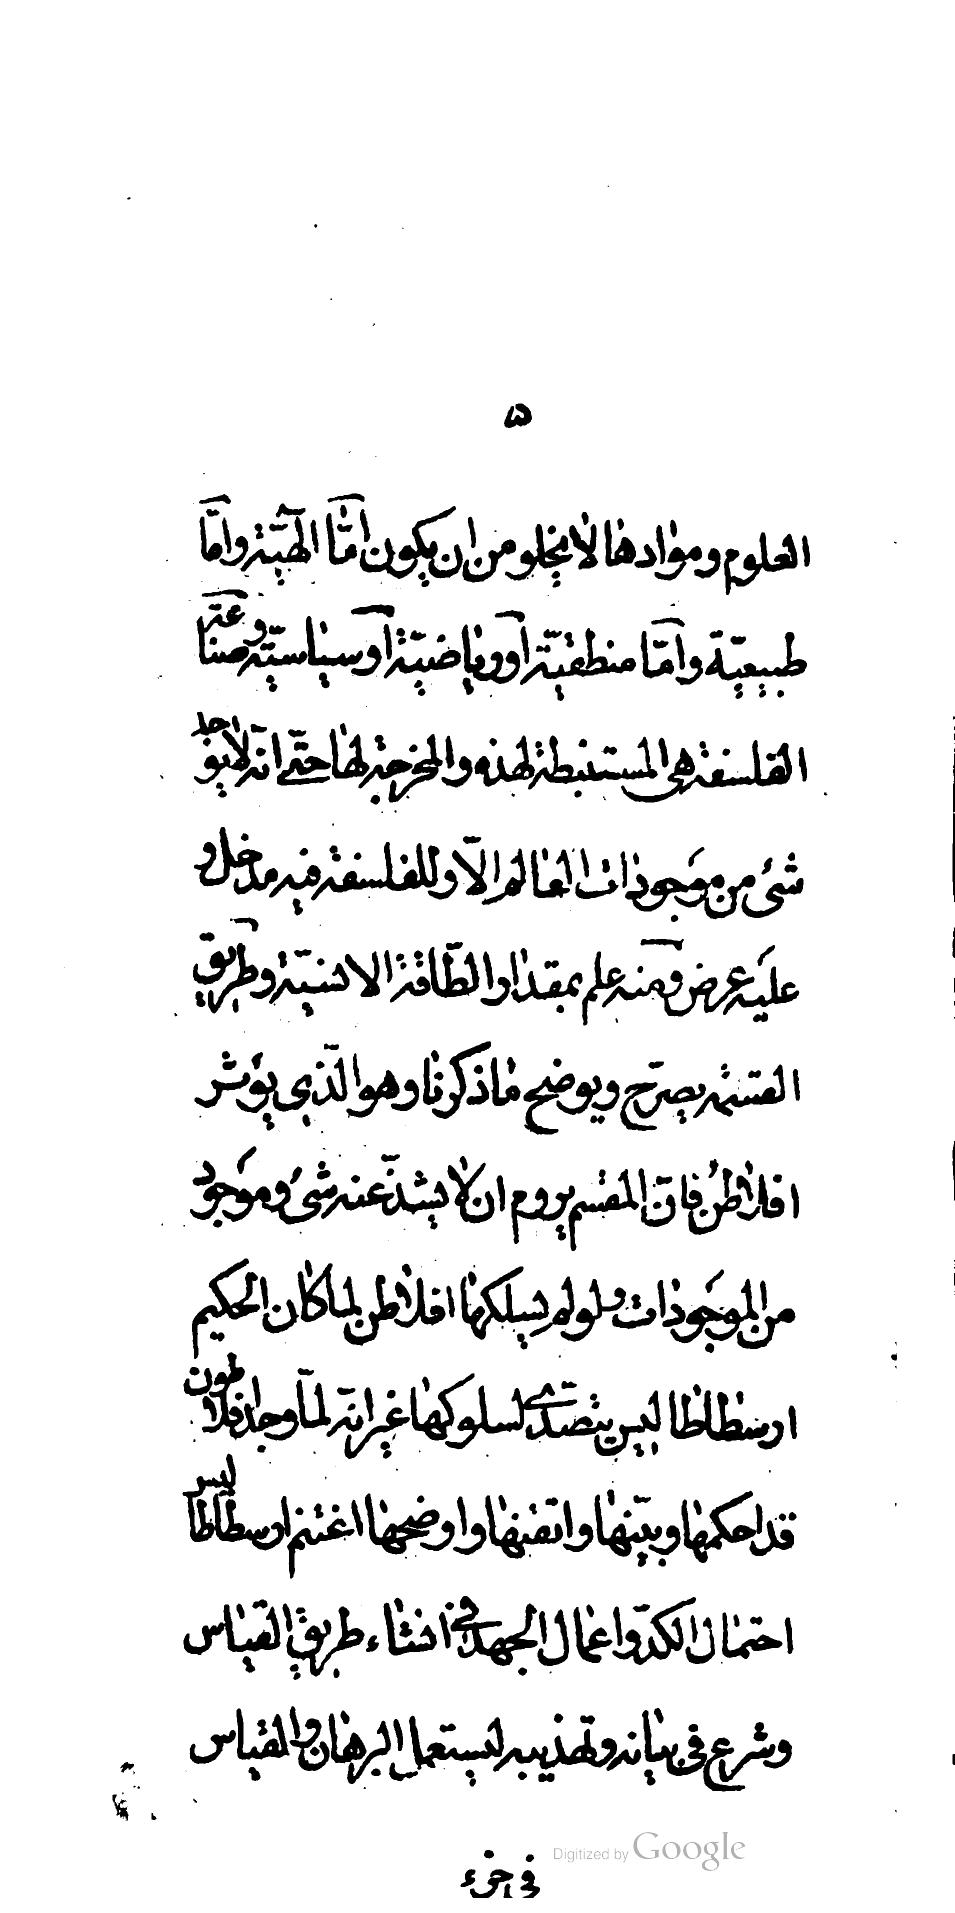 ۵
العلوم وموادها لا يخلو من ان يكون امّا الهيّة وامّا
طبيعيّة وامّا منطقيّة او رياضيّة او سياسيّة وصناعة
الفلسفة هى المستنبطة لهذه والمخرجة لها حتّى انّه لا يوجد
شئ من موجودات العالم الاّ وللفلسفة فيه مدخل و
عليه غرض ومنه علم بمقدار الطّاقة الانسيّة وطريق
القسمة يصرّح ويوضح ما ذكرنا وهو الّذى يؤثر
افلاطن فانّ المقسم يروم ان لا يشذّ عنه شئ وموجود
من الموجودات ولو لم يسلكها افلاطن لما كان الحكيم
ارسطاطاليس يتصدّى لسلوكها غير انّه لمّا وجد افلاطون
قد احكمها وبيّنها واتقنها واوضحها اغتنم ارسطاطاليس
احتمال الكدّ واعمال الجهد فى انشاء طريق القياس
وشرع فى بيانه وتهذيبه ليستعمل البرهان والقياس
فى جزء
Digitized by Google